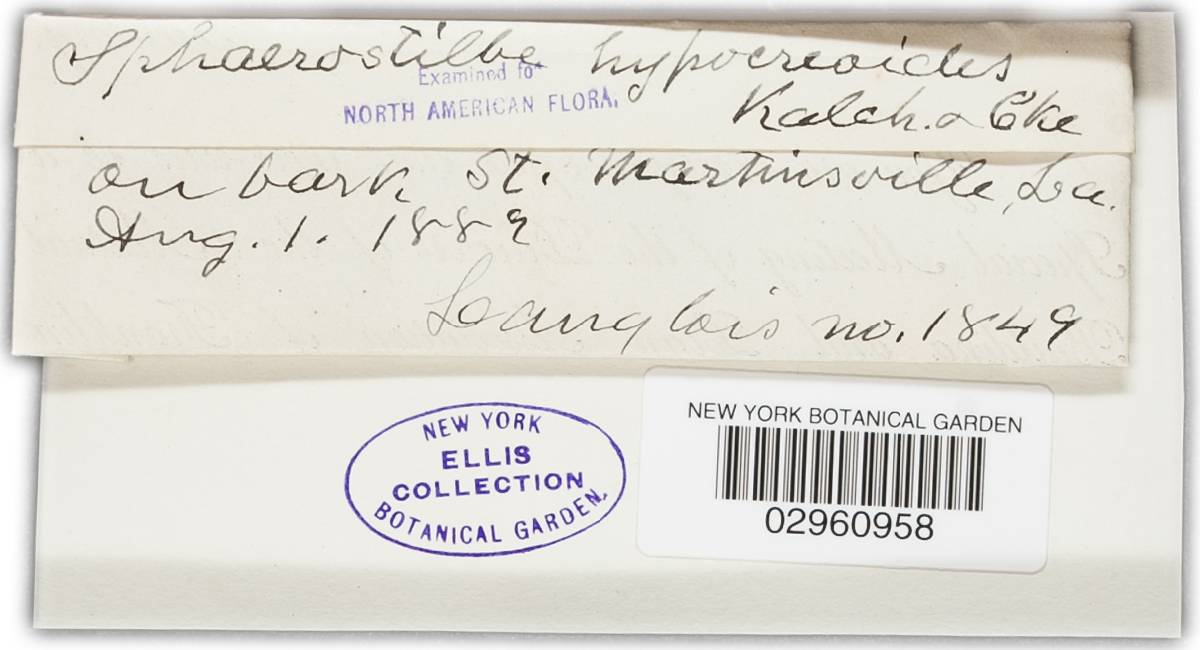 Sphaerostilbe hypocreoides
Examined for
NORTH AMERICAN FLORA.
Kalch. & Cke
on bark St. Martinsville, La.
Aug. 1. 1889
Langlois no. 1849
NEW YORK
ELLIS
COLLECTION
BOTANICAL GARDEN.
NEW YORK BOTANICAL GARDEN
02960958